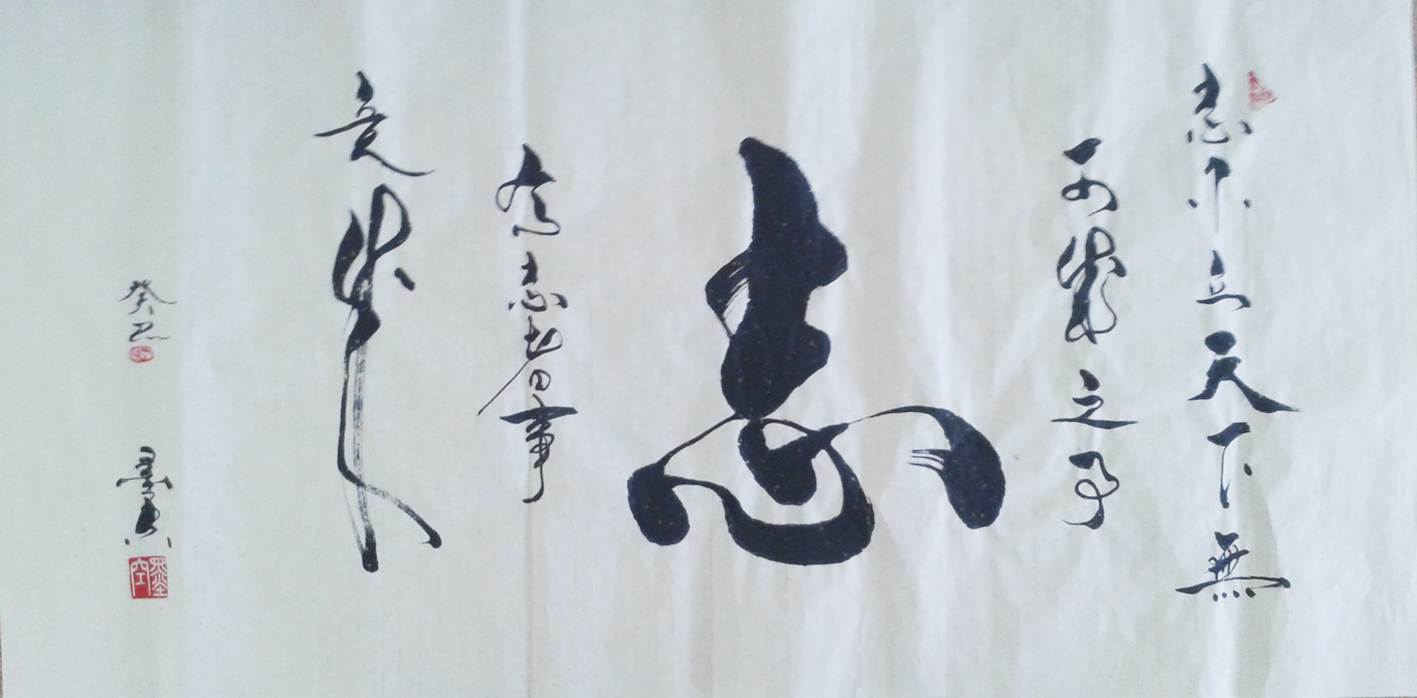 志不立天下無
可成之事
志
有志者日事
竟成
癸巳
墨
墨空